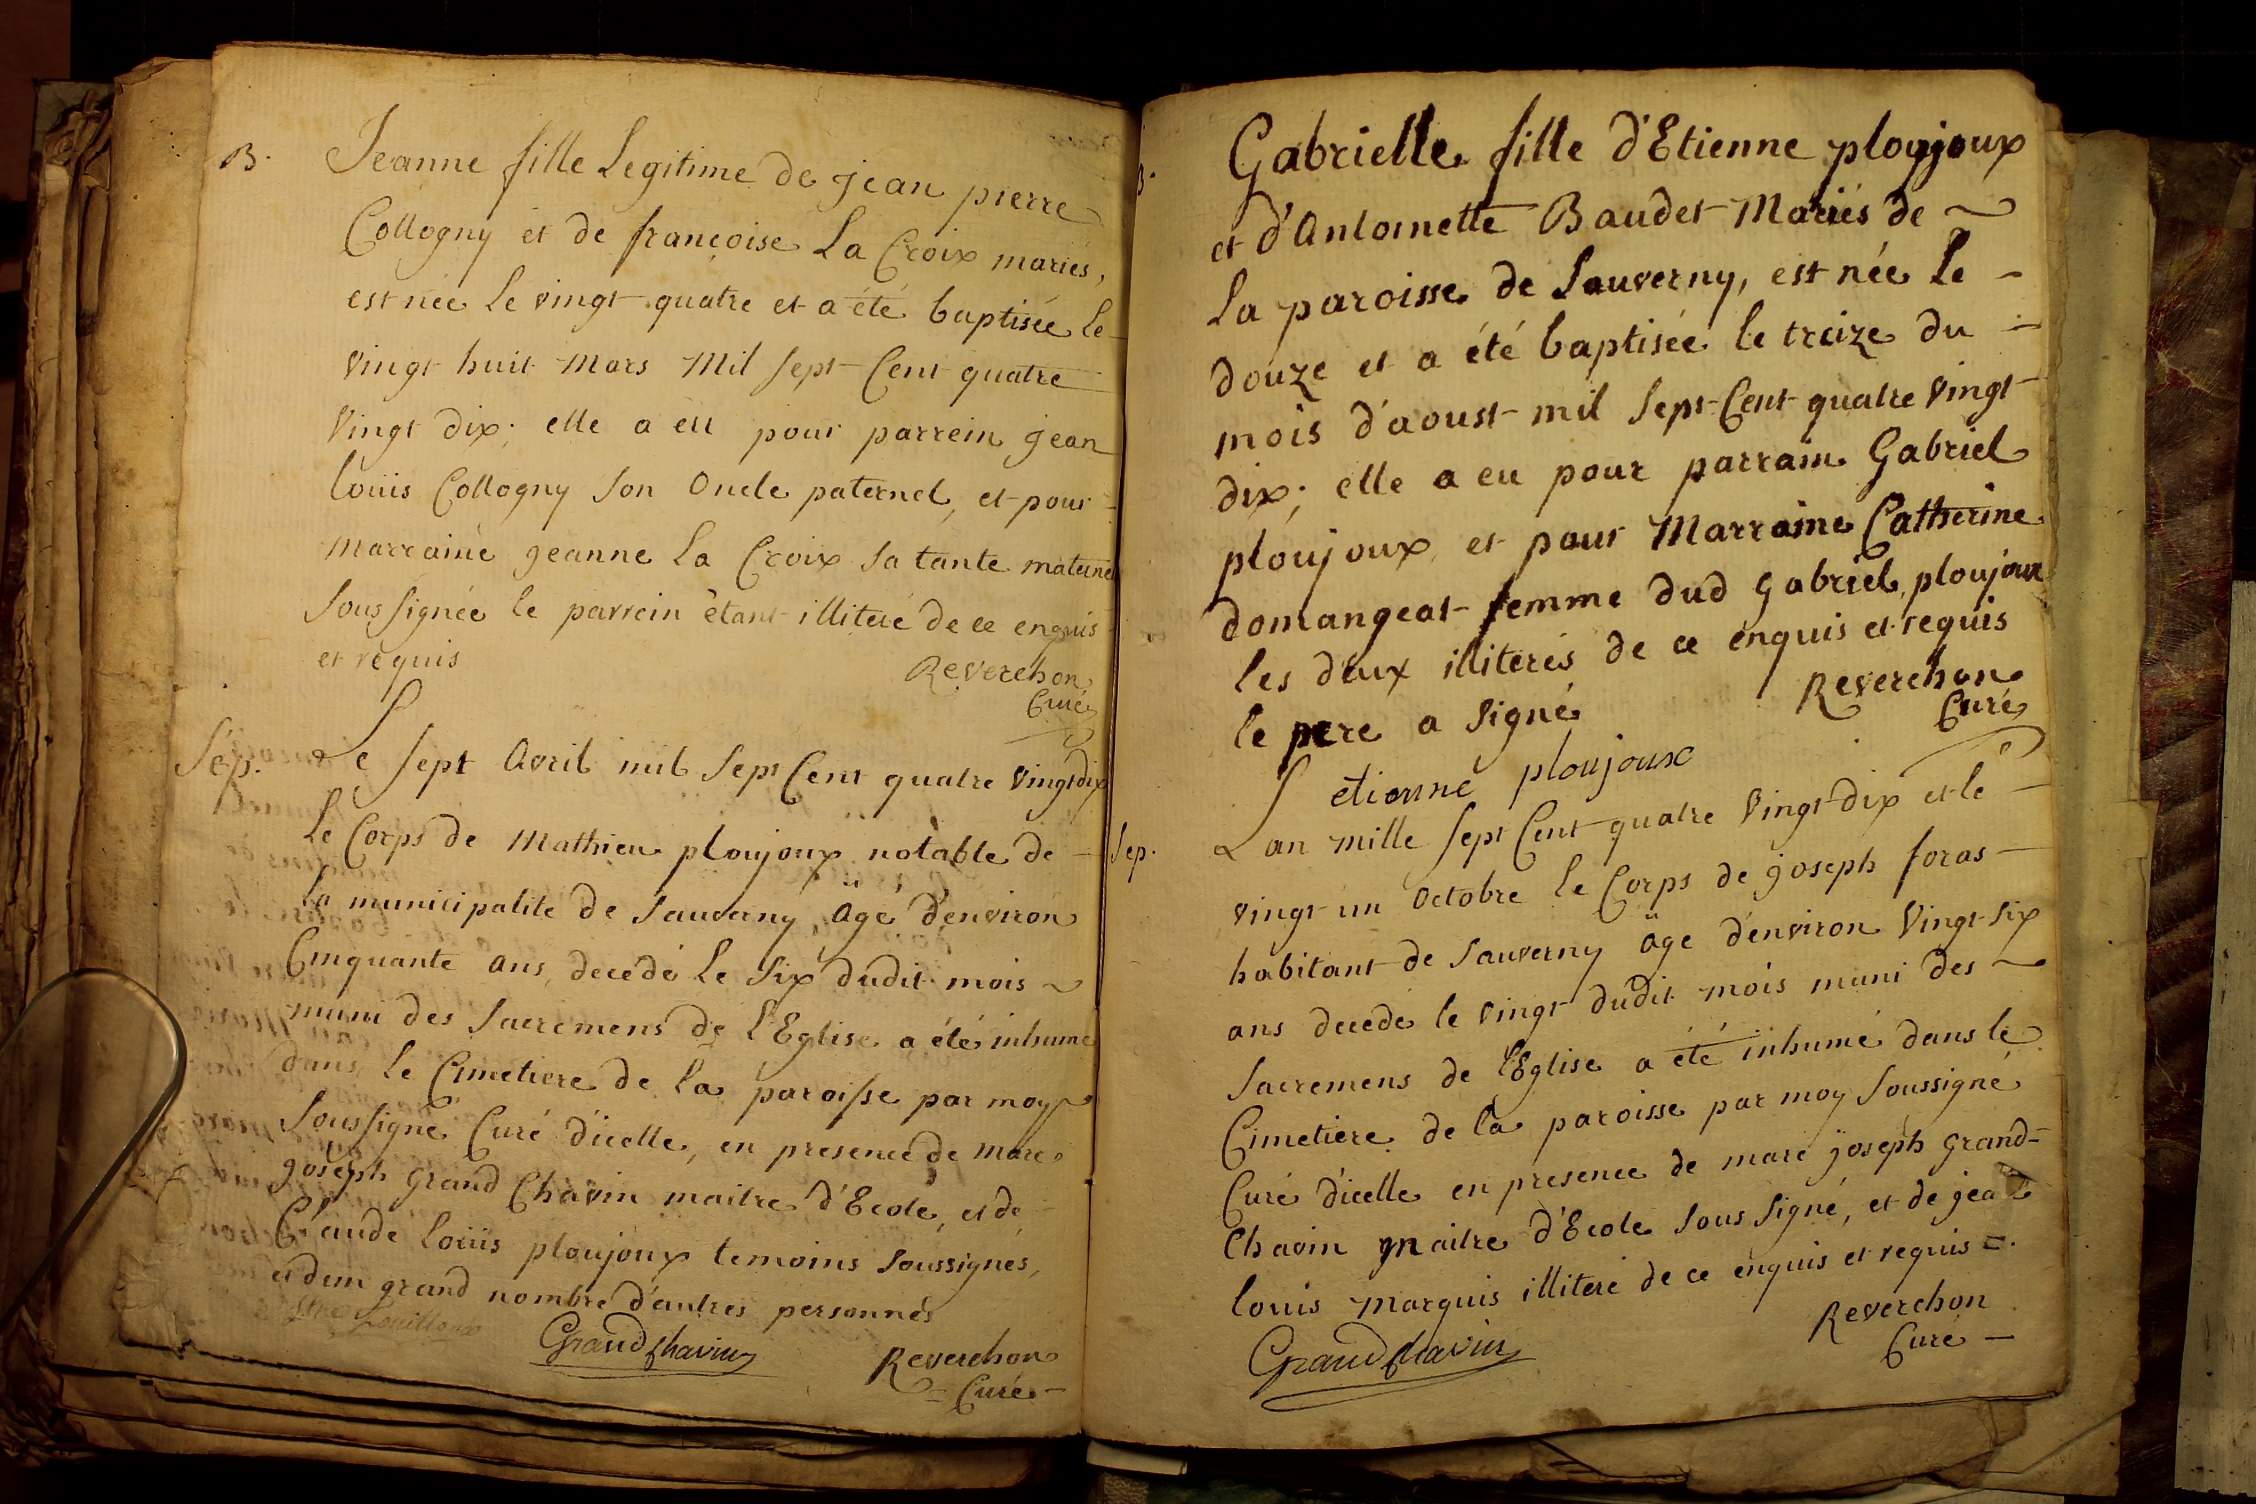 B. Jeanne fille Legitime de jean pierre
Collogny et de françoise La Croix mariés,
est née Le vingt quatre et a été baptisée le
vingt huit Mars Mil sept Cent quatre
vingt dix; elle a eu pour parrein jean
louis Collogny son Oncle paternel, et pour
marraine jeanne La Croix sa tante maternel
sous signée le parrein étant illiteré de ce enquis
et requis
Reverchon
Curé
Sép. Le sept Avril mil sept Cent quatre vingt dix
le Corps de Mathieu ploujoux notable de
la municipalité de Sauverny agé d'environ
Cinquante ans, decédé Le six dudit mois
muni des Sacremens de l'Eglise a été inhumé
dans le Cimetiere de la paroisse par moy
soussigné Curé d'icelle, en presence de marc
joseph Grand Chavin maitre d'Ecole, et de
Claude louis ploujoux temoins soussignés,
et d'un grand nombre d'autres personnes
Grandchavin
Reverchon
Curé
B. Gabrielle fille d'Etienne ploujoux
et d'Antoinette Baudet Mariés de
la paroisse de Sauverny, est née le
douze et a été baptisée le treize du
mois d'aoust mil sept Cent quatre vingt
dix; elle a eu pour parrain Gabriel
ploujoux et pour Marraine Catherine
domangeat femme dud Gabriel ploujoux
les deux illiterés de ce enquis et requis
le pere a signé
Reverchon
Curé
etienne ploujoux
Sep. L an mille sept Cent quatre vingt dix et le
vingt un octobre le Corps de joseph foras
habitant de Sauverny agé d'environ vingt six
ans decedé le vingt dudit mois muni des
Sacremens de l'Eglise a été inhumé dans le
Cimetiere de la paroisse par moy soussigné
Curé d'icelle en presence de marc joseph Grand=
Chavin maitre d'Ecole sous signé, et de jean
louis marquis illiteré de ce enquis et requis
Reverchon
Curé
Grandchavin